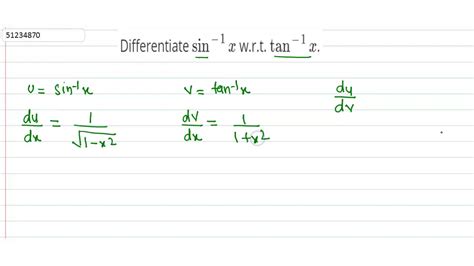 51234870
Differentiate sin⁻¹ x w.r.t. tan⁻¹ x.
u = sin⁻¹x   v = tan⁻¹x   du/dv
du/dx = 1/√(1-x²)   dv/dx = 1/(1+x²)